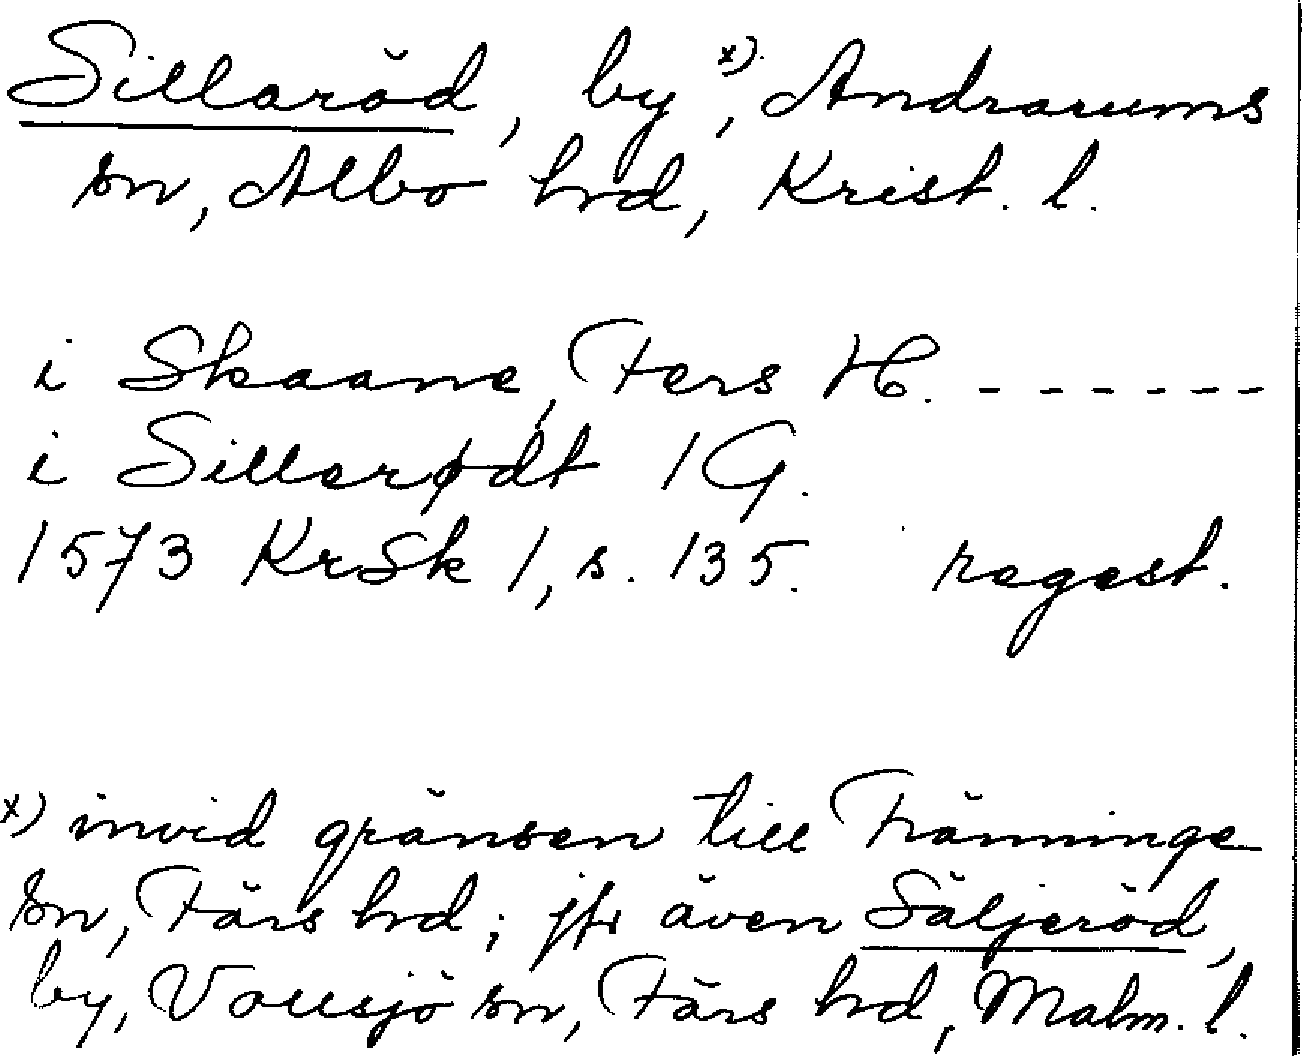 Sillaröd, by x), Andrarums
sn, Albo hrd, Krist. l.
i Skaane, Fers H. - - - - - -
i Sillerødt 1 G.
1573 KrSk 1, s. 135. regest.
x) invid gränsen till Tranninge
sn, Färs hrd; jfr även Säljeröd,
by, Vollsjö sn, Färs hrd, Malm. l.